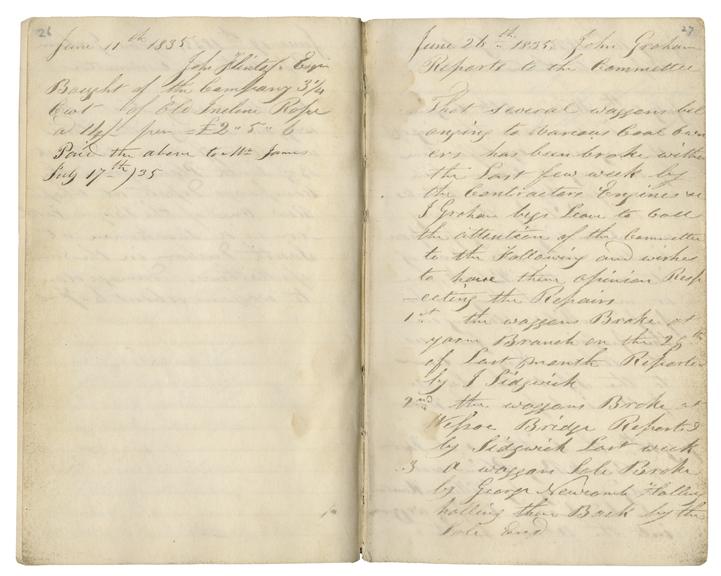 26
June 11th 1835
John Esqr
Bought of the Company 3 1/4
Cwt of Old Incline Rope
a 14/ per = £2 " 5 " 6
Paid the above to Mr James
July 17th /35
27
June 26th 1835 John Graham
Reports to the Committee
That several waggons bel
onging to Various Coal Own
ers has been broke within
the Last few week by
the Contractors Engines &c
J Graham begs Leave to Call
the attention of the Committee
to the Following and wishes
to have them opinion Resp
ecting the Repairs
1st the waggons Broke at
yarm Branch on the 26th
of Last month Reported
by J Sidgwick
2nd the waggons Broke at
Bridge Reported
by Sidgwick Last week
3 a waggon Sole Broke
by George Newcomb
halling them Back by the
Sole End